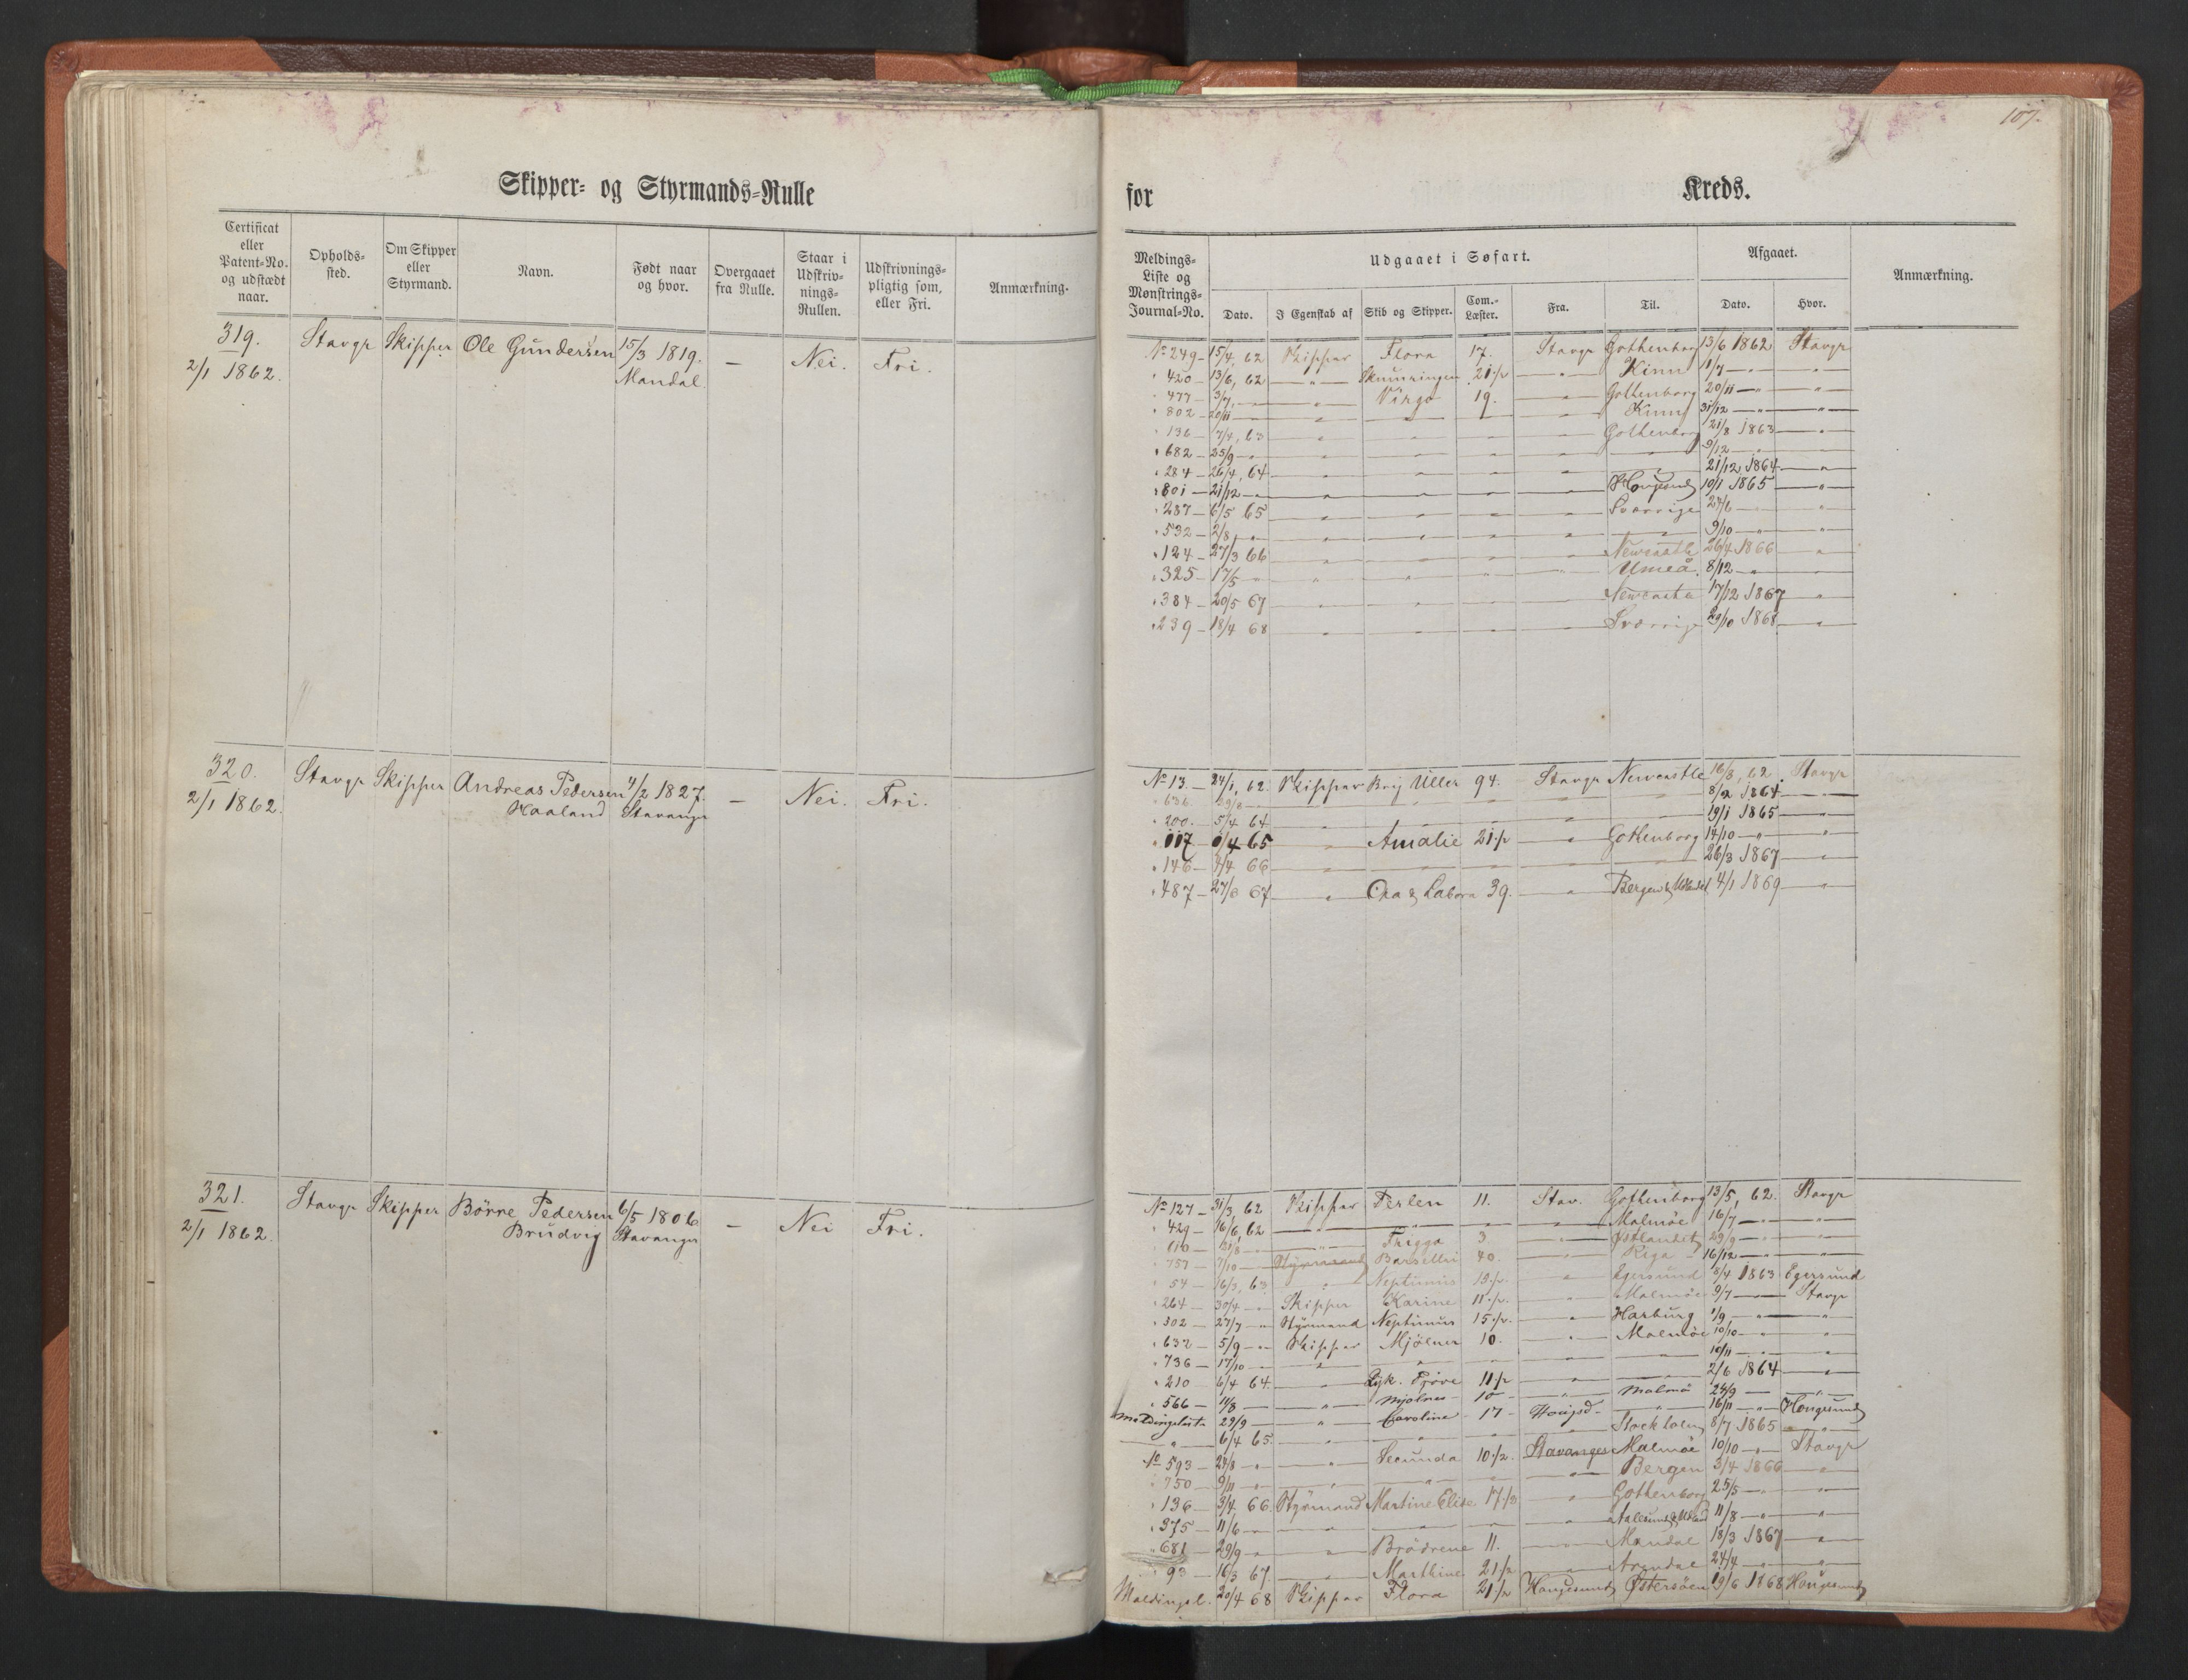 107.
Skipper- og Styrmands-Rulle
for Kreds.
Certificat eller Patent-No. og udstædt naar.
Opholds-sted.
Om Skipper eller Styrmand.
Navn.
Født naar og hvor.
Overgaaet fra Rulle.
Staar i Udskriv-nings-Rullen.
Udskrivnings-pligtig som, eller Fri.
Anmærkning.
319. Stavgr Skipper Ole Gundersen 15/3 1819. — Nei. Fri.
2/1 1862. Mandal.
320. Stavgr Skipper Andreas Pedersen 4/2 1827. — Nei. Fri.
2/1 1862. Haaland Stavangr
321. Stavgr Skipper Börre Pedersen 6/5 1806 — Nei Fri.
2/1 1862. Brudvig Stavanger
Meldings-Liste og Mønstrings-Journal-No.
Udgaaet i Søfart.
Dato.
I Egenskab af
Skib og Skipper.
Com.-Læster.
Fra.
Til.
Afgaaet.
Dato.
Hvor.
Anmærkning.
No 249 — 15/4, 62 Skipper Flora 17. Stavgr Gothenborg 13/6 1862 Stavgr
" 420 — 13/6, 62 — " — Skumringen 21 1/2 — " — Kinn 11/7 — " — "
" 477 — 3/7, — " — Virgo 19. — " — Gothenborg 20/11 — " — "
" 802 — 20/11 — " — Kinn 31/12 — " — "
" 136 — 7/4, 63 " " — " Gothenborg 21/8 1863 — "
" 682 — 25/9 — " " " — " " 9/12 —
" 284 — 26/4, 64 " " — " 21/12 1864 — "
" 801 — 21/12 — " " " — " Hougesund 10/1 1865 — "
" 287 — 6/5 65 " " " " Sverrige 27/6 — "
" 532 — 2/8, — " " " " " 9/10 — " "
" 124 — 27/3 66 " " " " Newcastle 26/4 1866 "
" 325 — 17/5 " " " " " Umeå. 8/12 — "
" 384 — 20/5 67 " " " " Newcastle 17/12 1867 "
" 239 — 18/4 68 " " " " Sverrige 29/10 1868 — "
No 13. — 24/1, 62. Skipper Brig Uller 94. — Stavgr Newcastle 16/3, 62. Stavgr
" 636. 29/8 — 8/2 1864 — "
" 200. — 5/4 64 — 19/1 1865 — "
" 117 — 1/4 65 " Amalie 21 1/2 " Gothenborg 14/10 — " "
" 146 — 4/4 66 — 26/3 1867 — "
" 487 — 27/6 67 — " Ora & Labora 39. — " 4/1 1869 — "
No 127 — 31/3 62 Skipper Perlen 11. Stav. Gothenborg 13/5, 62. Stavgr
" 429 — 16/6, 62 — " — Malmöe 16/7 — " "
Frigga 3 — " 29/9 — "
" 757 — 7/10 — Styrmand 40. — " Riga 16/12 — " "
" 54 — 16/3, 63 " Neptunus " Egersund 8/4 1863 Egersund
" 264 — 30/4 — " Skipper Karine 11 1/2. " Malmöe 9/7 — Stavgr
" 302 — 27/7 " Styrmand Neptunus 15 1/2. " Harburg 1/9 — " "
" 632 — 5/9 — " Skipper Mjölner 10. " Malmöe 10/10 — " "
" 736 — 17/10 — " — " 10/11 — " "
" 210 — 6/4 64 " 11 1/2 " 2/6 1864 — "
" 566 — 1/8 — " Mjølner 10 — " Malmö 24/9 — "
Meldingsliste 29/9 — " Caroline 17 — " 16/11 — " Hougesund
" 6/4 65 " " Stockholm 8/7 1865 "
No 593 — 24/8 — " " Secunda 10 1/2. Stavanger Malmöe 10/10 — " Stavgr
" 750 — 9/11 — " " Bergen 3/4 1866 "
" 136 — 3/4 66 Styrmand Martine Elise " Gothenborg 25/5 — "
" 375 — 11/6 — " " — " 11/8 — " "
" 681 — 29/9 — " " Brødrene 11. — Mandal 18/3 1867 — "
" 93 — 16/3 67. " Marthine 21 1/2 — " Arendal 24/4 — " "
Meldingsl. 20/4 68 Skipper Flora 21 1/2 Hougesund Østersöen 19/6 1868 Hougesund